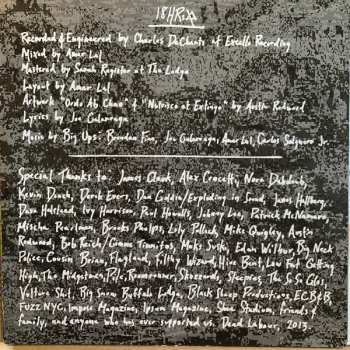 18HRDXX
Recorded & Engineered by Charles DeChants at Excello Recording
Mixed by Amar Lal
Mastered by Sarah Register at The Lodge
Layout by Amar Lal
Artwork "Ordo Ab Chao" & "Nutrisco et Extingo" by Austin Redwood
Lyrics by Joe Galarraga
Music by Big Ups: Brendan Finn, Joe Galarraga, Amar Lal, Carlos Salguero Jr.
Special Thanks to: James Clark, Alex Crocetti, Nora Dabdoub,
Kevin Dench, Derek Evers, Dan Goldin/Exploding in Sound, James Hallberg,
Dave Halstead, Ivy Harrison, Paul Howells, Johnny Lee, Patrick McNamara,
Mischa Pearlman, Brooks Phelps, Lily Pollack, Mike Quigley, Austin
Redwood, Bob Reich/Gimme Tinnitus, Moks Sushi, Edan Wilbur, Big Neck
Police, Cousin Brian, Flagland, Filthy Wizard, Hive Bent, Low Fat Getting
High, The Midgetmen, Pile, Roomrunner, Shezzards, Sleepies, The So So Glos,
Vulture Shit, Big Snow Buffalo Lodge, Black Sheep Productions, EC, B&B,
FUZZ NYC, Impose Magazine, Ipsum Magazine, Shea Stadium, friends &
family, and anyone who has ever supported us. Dead Labour, 2013.